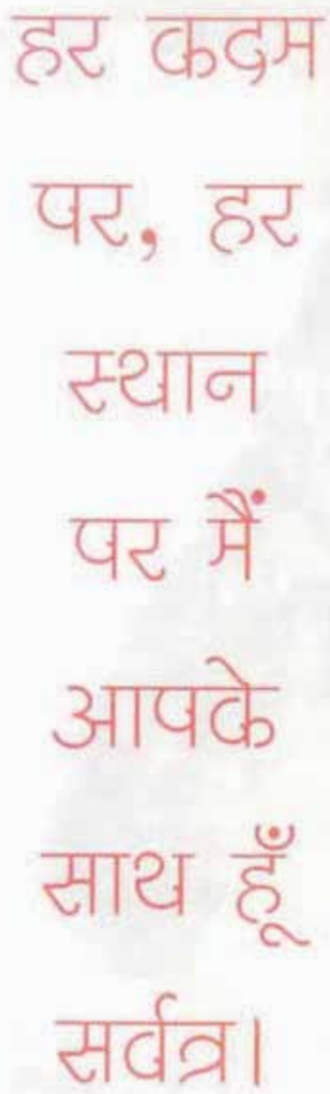 हर कदम
पर, हर
स्थान
पर मैं
आपके
साथ हूँ
सर्वत्र।